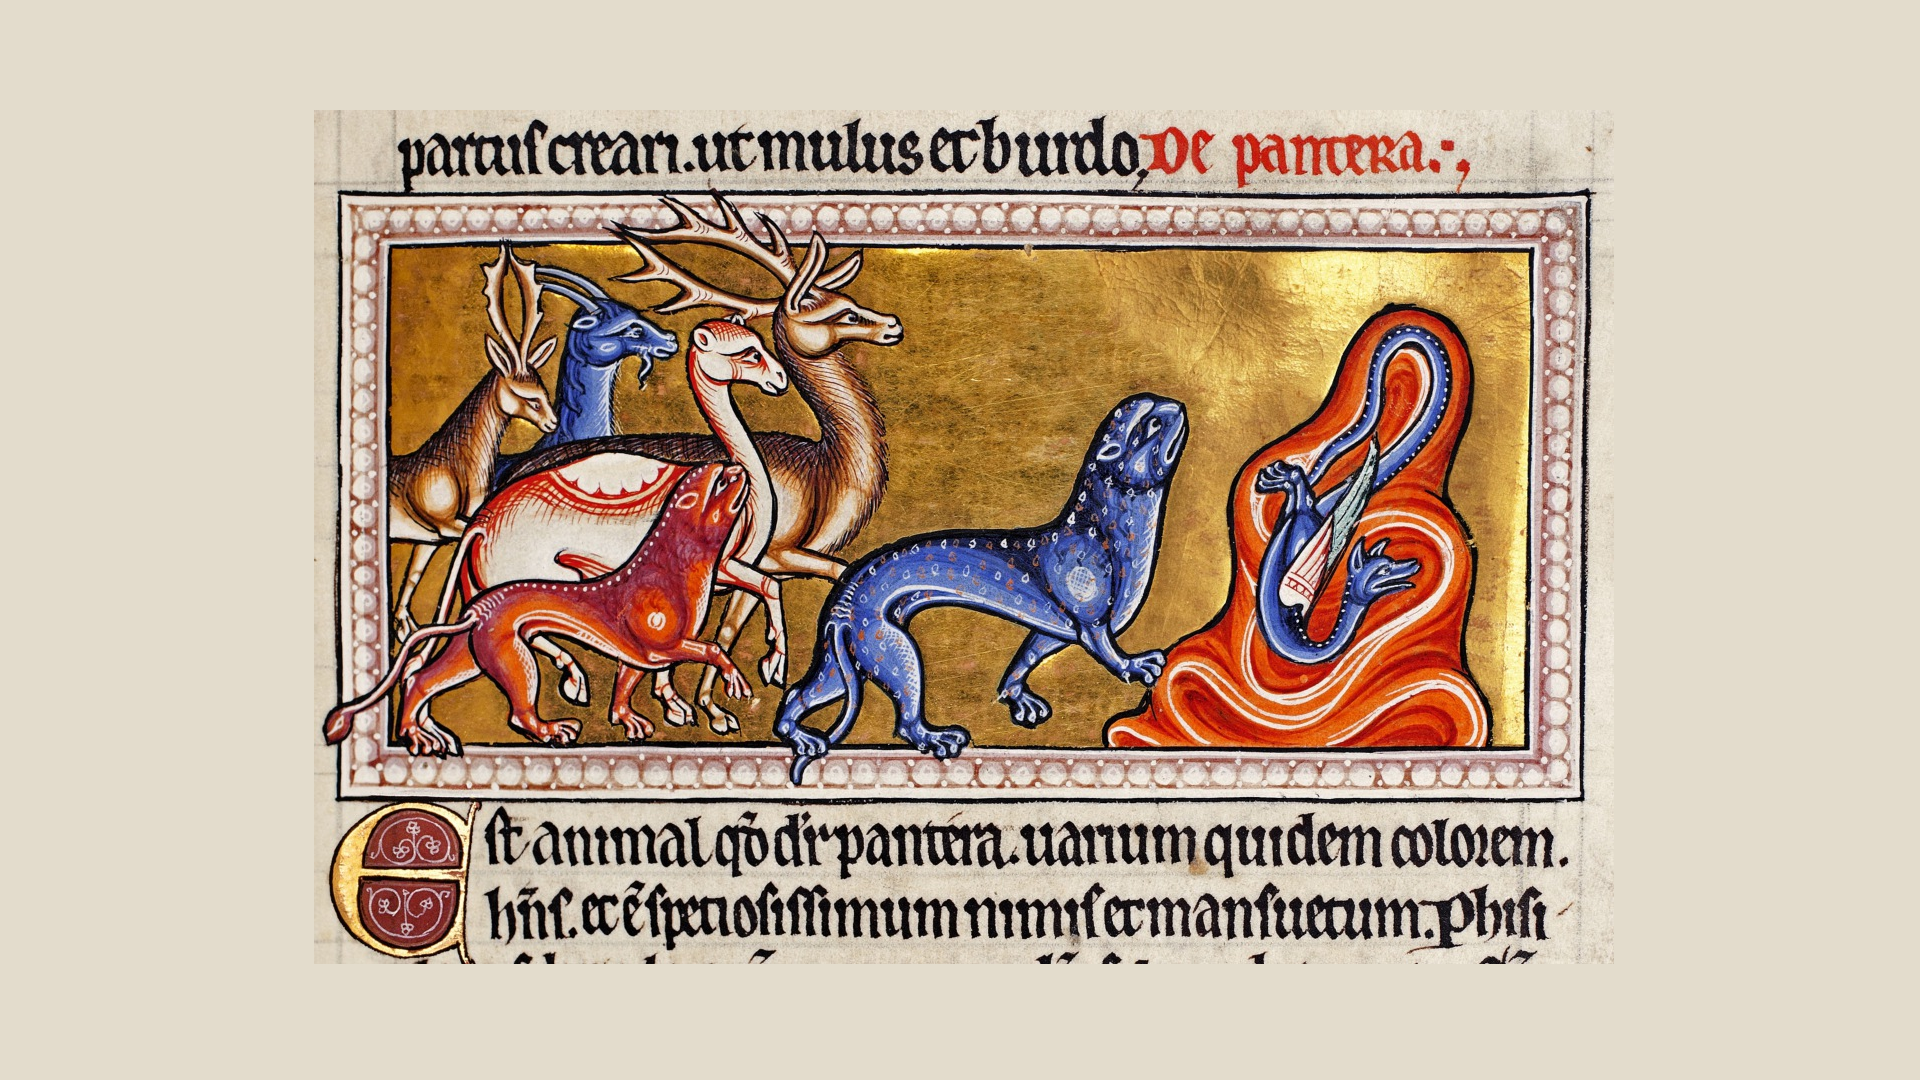 partus creari. ut mulus et burdo. De pantera.
Est animal qđ dr̄ pantera. uarium quidem colorem.
hn̄s. et ē spetiosissimum nimis et mansuetum. Phisi